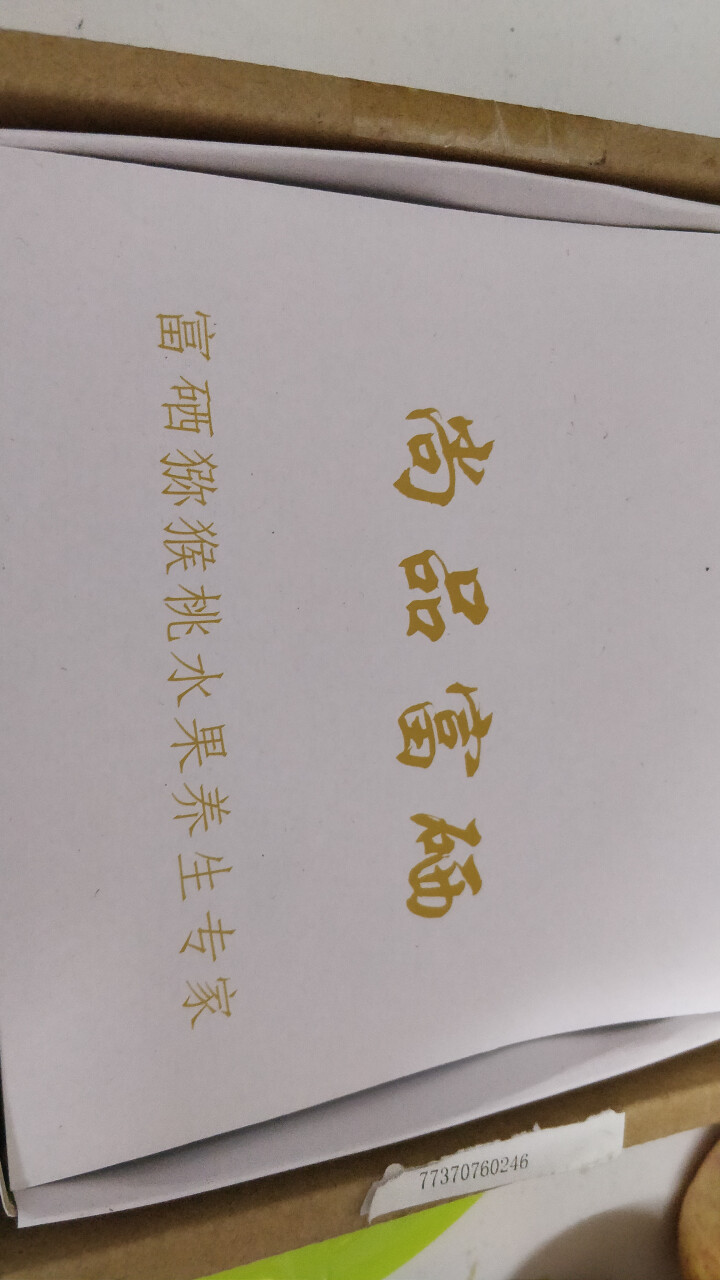 尚品富硒
富硒猕猴桃水果养生专家
77370760246